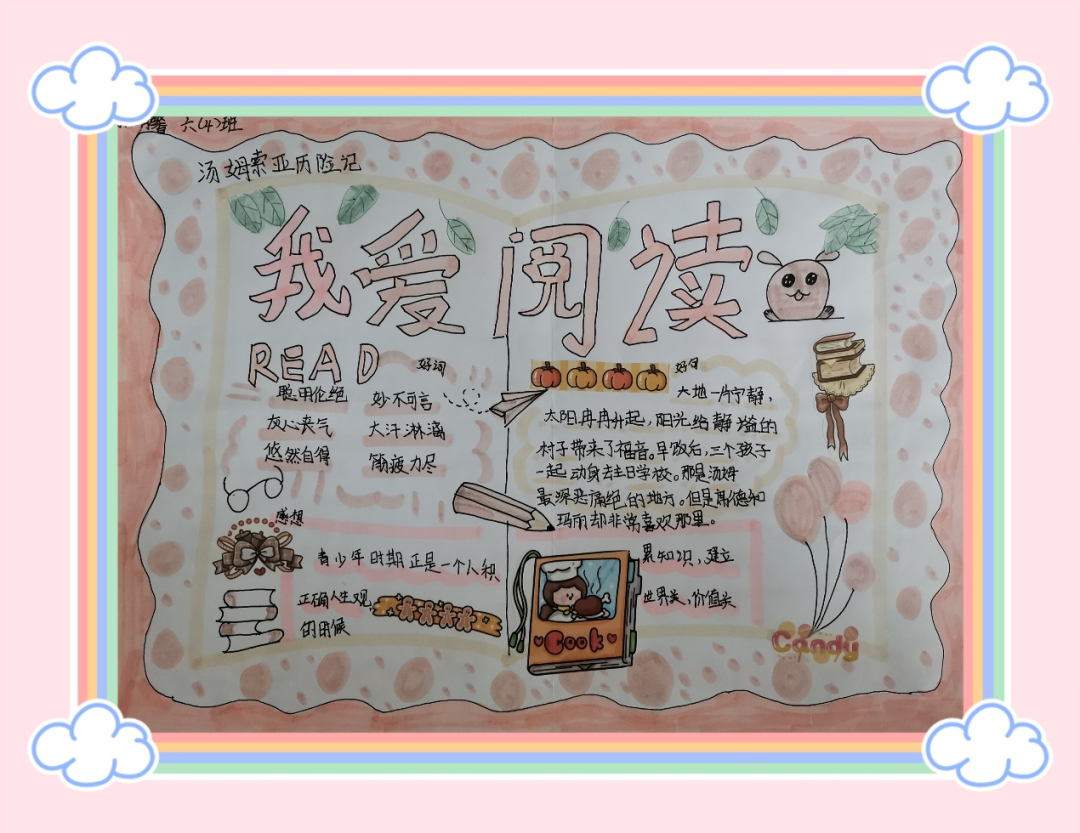 六(4)班
汤姆索亚历险记
我爱阅读
READ
好词
妙不可言
灰心丧气 大汗淋漓
悠然自得 筋疲力尽
好句
大地一片宁静,
太阳冉冉升起,阳光给静溢的
村子带来了福音。早饭后,三个孩子
一起动身去主日学校。那是汤姆
最深恶痛绝的地方。但是席德和
玛丽却非常喜欢那里。
感想
青少年时期正是一个人积
累知识,建立
正确人生观,
世界关,价值关
的时候
Cook
Candy